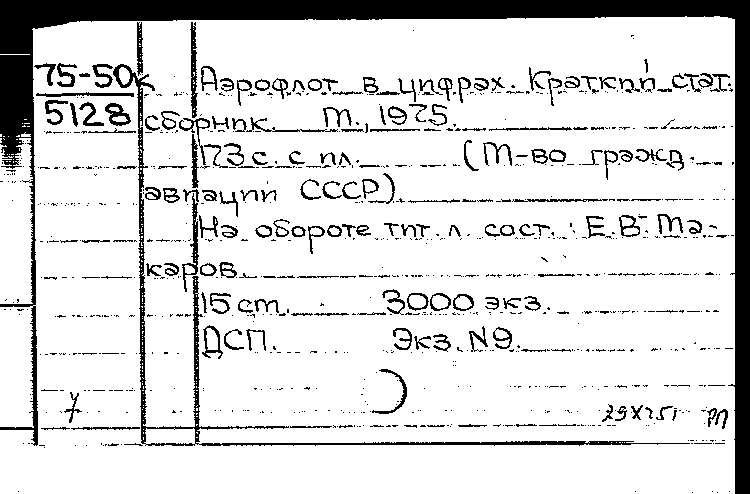 75-50к Аэрофлот в цифрах. Краткий стат.
5128 сборник. М., 1975.
173 с. с ил. (М-во гражд.
авиации СССР).
На обороте тит. л. сост.: Е.В. Ма-
каров.
15 см. 3000 экз.
ДСП. Экз. №9.
7